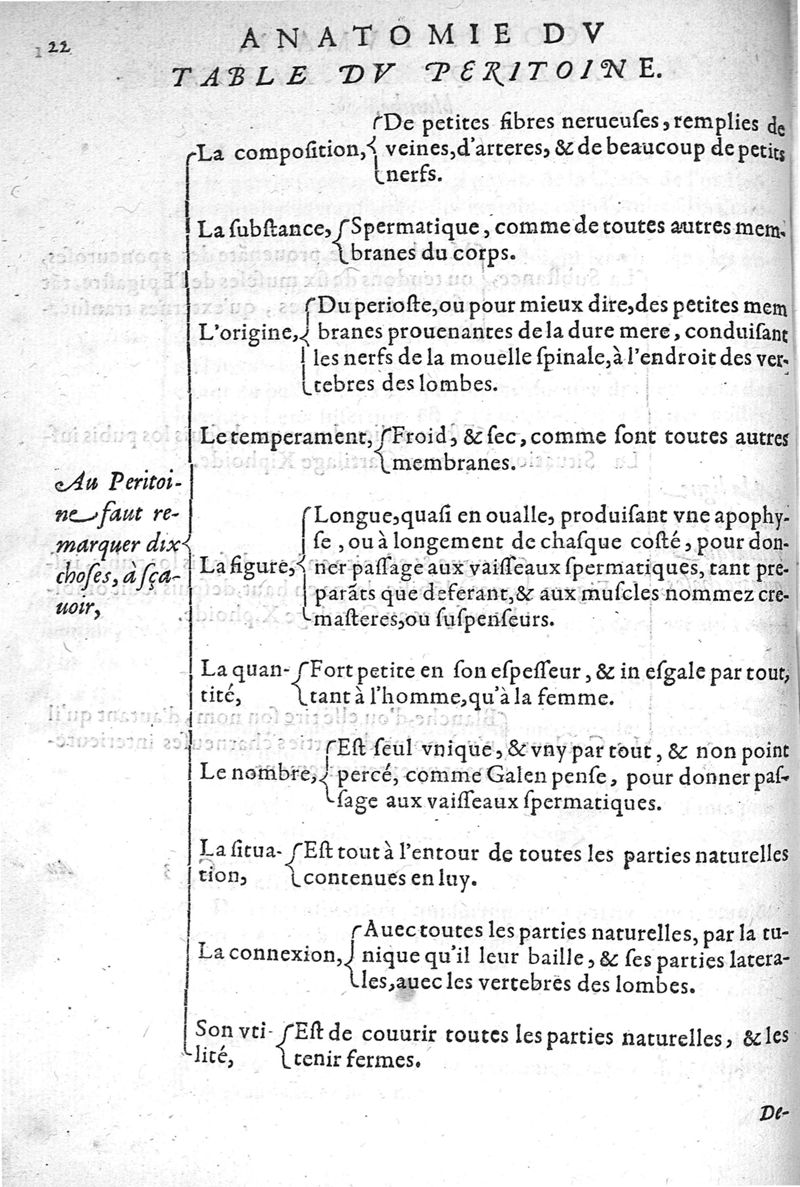 22
ANATOMIE DV
TABLE DV PERITOINE.
Au Peritoi-
ne faut re-
marquer dix
choses, à sça-
uoir,
La compoſition,
De petites fibres nerueuſes, remplies de
veines, d'arteres, & de beaucoup de petits
nerfs.
La ſubſtance,
Spermatique, comme de toutes autres mem-
branes du corps.
L'origine,
Du perioſte, ou pour mieux dire, des petites mem
branes prouenantes de la dure mere, conduiſant
les nerfs de la mouelle ſpinale, à l'endroit des ver-
tebres des lombes.
Le temperament,
Froid, & ſec, comme ſont toutes autres
membranes.
La figure,
Longue, quaſi en oualle, produiſant vne apophy-
ſe, ou à longement de chaſque coſté, pour don-
ner paſſage aux vaiſſeaux ſpermatiques, tant pre-
parāts que deferant, & aux muſcles nommez cre-
maſteres, ou ſuſpenſeurs.
La quan-
tité,
Fort petite en ſon eſpeſſeur, & in eſgale par tout,
tant à l'homme, qu'à la femme.
Le nombre,
Eſt ſeul vnique, & vny par tout, & non point
percé, comme Galen penſe, pour donner paſ-
ſage aux vaiſſeaux ſpermatiques.
La ſitua-
tion,
Eſt tout à l'entour de toutes les parties naturelles
contenues en luy.
La connexion,
Auec toutes les parties naturelles, par la tu-
nique qu'il leur baille, & ſes parties latera-
les, auec les vertebres des lombes.
Son vti-
lité,
Eſt de couurir toutes les parties naturelles, & les
tenir fermes.
De-